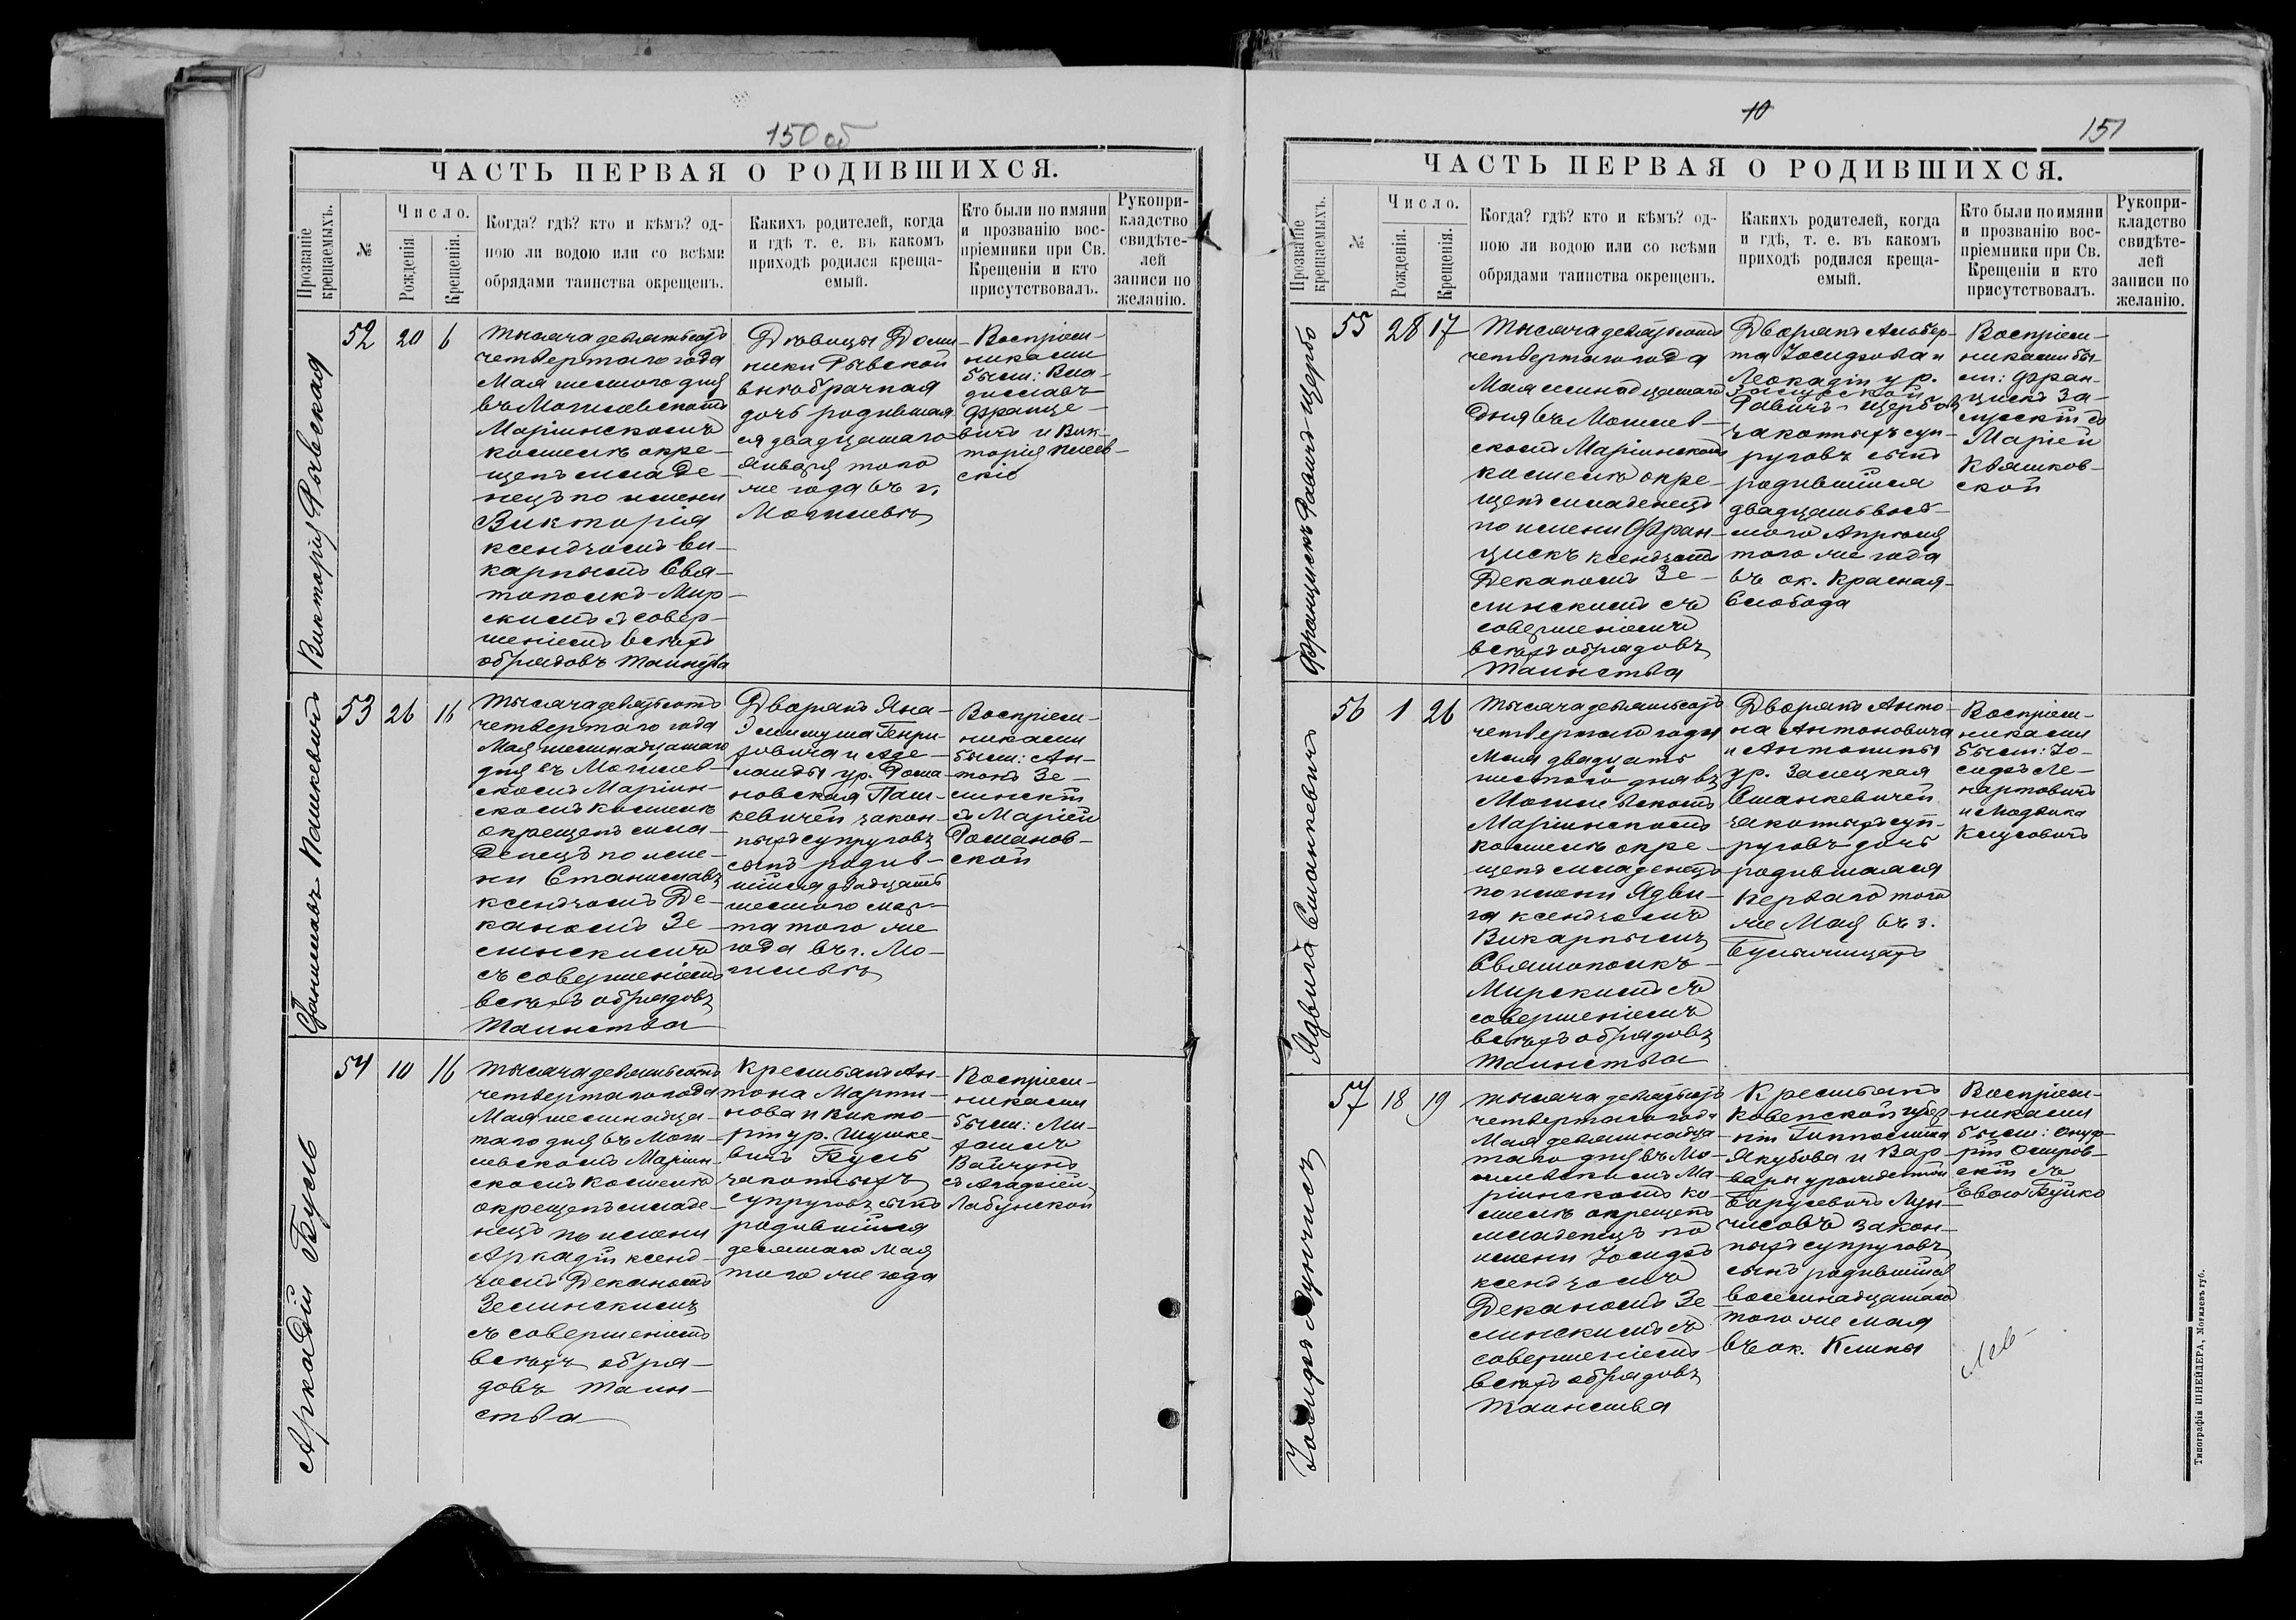 150 об
ЧАСТЬ ПЕРВАЯ О РОДИВШИХСЯ.
Прозваніе крещаемыхъ.
№
Число.
Рожденія
Крещенія.
Когда? гдѣ? кто и кѣмъ? од-
ною ли водою или со всѣми
обрядами таинства окрещенъ.
Какихъ родителей, когда
и гдѣ т. е. въ какомъ
приходѣ родился креща-
емый.
Кто были по имяни
и прозванію вос-
пріемники при Св.
Крещеніи и кто
присутствовалъ.
Рукопри-
кладство
свидѣте-
лей
записи по
желанію.
Викторія Рывская
52 20 6
Тысяча девятьсотъ
четвертаго года
Мая шестого дня
въ Могилевскомъ
Маріинскомъ
костелѣ окре-
щенъ младе-
нецъ по имени
Викторія
ксендзомъ Ви-
карнымъ Свя-
тополкъ-Мир-
скимъ съ совер-
шеніемъ всѣхъ
обрядовъ Таинства
Дѣвицы Доми-
ники Рывской
внѣбрачная
дочь родившая-
ся двадцатаго
Января того
же года въ г.
Могилевѣ
Воспріем-
никами
были: Вла-
диславъ
Францке-
вичъ и Вик-
торія
53 26 16
Станиславъ Пашкевичъ
Тысяча девятьсотъ
четвертаго года
Мая шестнадцатаго
дня въ Могилев-
скомъ Маріин-
скомъ костелѣ
окрещенъ мла-
денецъ по име-
ни Станиславъ
ксендзомъ Де-
каномъ Зе-
линскимъ
съ совершеніемъ
всѣхъ обрядовъ
Таинства
Дворянъ Яна-
Генри-
ховича и Аде-
лаиды ур. Рома-
новская Паш-
кевичей закон-
ныхъ супруговъ
сынъ родив-
шійся двадцать
шестого Мар-
та того же
года въ г. Мо-
гилевѣ
Воспріем-
никами
были: Ан-
тонъ Зе-
линскій
съ Маріей
Романов-
ской
Аркадій Бусь
54 10 16
Тысяча девятьсотъ
четвертаго года
Мая шестнадца-
таго дня въ Моги-
левскомъ Маріин-
скомъ костелѣ
окрещенъ младе-
нецъ по имени
Аркадій ксенд-
зомъ Деканомъ
Зелинскимъ
съ совершеніемъ
всѣхъ обря-
довъ Таин-
ства
Крестьянъ Ан-
тона Марти-
нова и Викто-
ріи ур. Шушке-
вичъ Бусь
законныхъ
супруговъ сынъ
родившійся
десятаго Мая
того же года
Воспріем-
никами
были: Ми-
хаилъ
Войчунъ
съ Агафіей
Лабунской
10
151
ЧАСТЬ ПЕРВАЯ О РОДИВШИХСЯ.
Прозваніе крещаемыхъ.
№
Число.
Рожденія.
Крещенія.
Когда? гдѣ? кто и кѣмъ? од-
ною ли водою или со всѣми
обрядами таинства окрещенъ.
Какихъ родителей, когда
и гдѣ, т. е. въ какомъ
приходѣ родился креща-
емый.
Кто были по имяни
и прозванію вос-
пріемники при Св.
Крещеніи и кто
присутствовалъ.
Рукопри-
кладство
свидѣте-
лей
записи по
желанію.
Францискъ Равичъ-Щербо
55 28 17
Тысяча девятьсотъ
четвертаго года
Мая семнадцатаго
дня въ Могилев-
скомъ Маріинскомъ
костелѣ окре-
щенъ младенецъ
по имени Фран-
цискъ ксендзомъ
Деканомъ Зе-
линскимъ съ
совершеніемъ
всѣхъ обрядовъ
Таинства
Дворянъ Альбер-
та Іосифова и
Леокадіи ур.
Залусской
Равичъ-Щербовъ
законныхъ суп-
руговъ сынъ
родившійся
двадцать вось-
мого Апрѣля
того же года
въ ок. Красная-
Слобода
Воспріем-
никами бы-
ли: Фран-
цискъ За-
лусскій съ
Маріей
Квяшков-
ской
Ядвига Станкевичъ
56 1 26
Тысяча девятьсотъ
четвертаго года
Мая двадцать
шестого дня въ
Могилевскомъ
Маріинскомъ
костелѣ окре-
щенъ младенецъ
по имени Ядви-
га ксендзомъ
Викарнымъ
Святополкъ-
Мирскимъ съ
совершеніемъ
всѣхъ обрядовъ
Таинства
Дворянъ Анто-
на Антоновича
и Антонины
ур. Залецкая
Станкевичей
законныхъ суп-
руговъ дочь
родившаяся
перваго того
же Мая въ з.
Воспріем-
никами
были: Іо-
сифъ Ле-
нартовичъ
и
Іосифъ Лунчисъ
57 18 19
Тысяча девятьсотъ
четвертаго года
Мая девятнадца-
таго дня въ Мо-
гилевскомъ Ма-
ріинскомъ ко-
стелѣ окрещенъ
младенецъ по
имени Іосифъ
ксендзомъ
Деканомъ Зе-
линскимъ съ
совершеніемъ
всѣхъ обрядовъ
Таинства
Крестьянъ
Ковенской губер-
ніи Гипполита
Якубова и Вар-
вары урожденной
Барусевичъ Лун-
чисовъ закон-
ныхъ супруговъ
сынъ родившійся
восемнадцатаго
того же мая
въ ок. Климы
Воспріем-
никами
были: Онуф-
рій Остров-
скій съ
Евою Буйко
Типографія ШНЕЙДЕРА, Могилевъ губ.